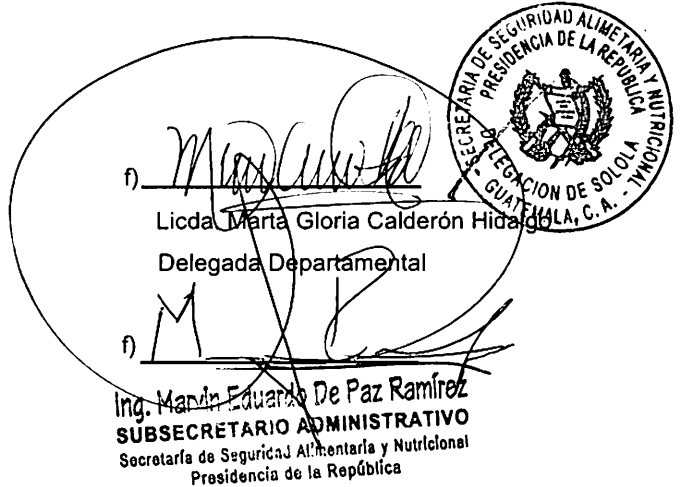 SECRETARIA DE SEGURIDAD ALIMETARIA Y NUTRICIONAL
PRESIDENCIA DE LA REPUBLICA
DELEGACION DE SOLOLA
- GUATEMALA, C. A. -
f)
Licda. Marta Gloria Calderón Hidalgo
Delegada Departamental
f)
Ing. Marvin Eduardo De Paz Ramírez
SUBSECRETARIO ADMINISTRATIVO
Secretaría de Seguridad Alimentaria y Nutricional
Presidencia de la República